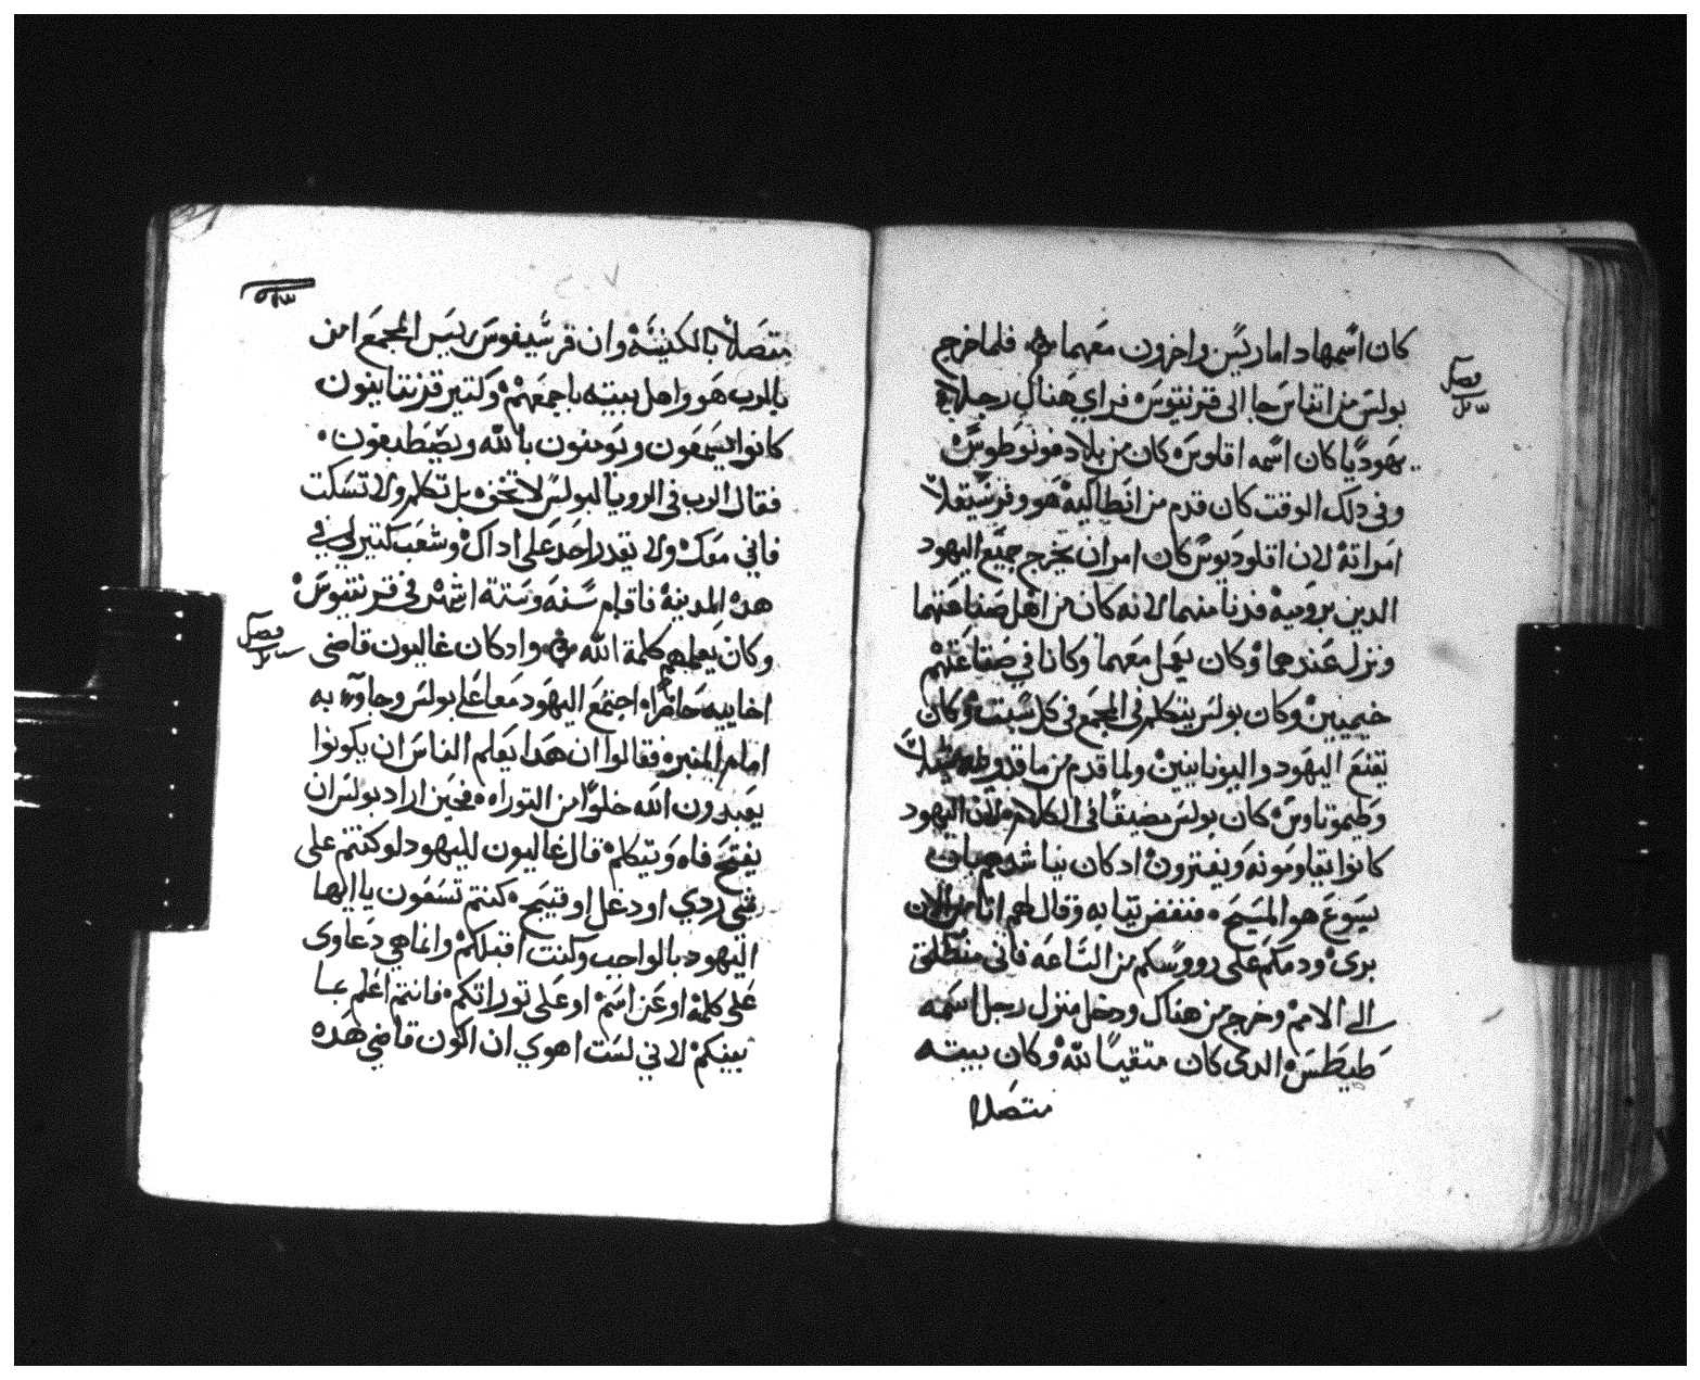 كان اسمها دامار يس واخرون معهما فلما خرج
بولس من اثناس جا الى قرنتيوس فراي هناك رجلا
يهوديا كان اسمه اقلوس كان من بلاد فونوطوس
وفى دلك الوقت كان قدم من انطاكيه هو وفرسقلا
امراته لان اقلوديوس كان امر ان يخرج جميع اليهود
الدين بروميه فدنا منهما لانه كان من اهل صناعتهما
ونزل عندهما وكان يعمل معهما وكانا في صناعتهم
خيميين وكان بولس يتكلم فى المجمع فى كل سبت وكان
يقنع اليهود واليونانيين ولما قدم من ماقدونيه
وطيموتاوس كان بولس مضيقا فى الكلام لان اليهود
كانوا يقاومونه ويفترون ادكان يناشدهم بان
يسوع هو المسيح فنفض تيابه وقال لهم انا من الان
برى ودمكم على رووسكم من الساعه فانى منطلق
الى الامم وخرج من هناك ودخل منزل رجل اسمه
طيطس الدى كان متقيا لله وكان بيته
متصلا
فصل
متصلا بالكنيسه وان قرسيفوس ريس المجمع امن
بالرب هو واهل بيته باجمعهم وكتير قرنتانيون
كانوا يسمعون ويومنون بالله ويصطبغون
فقال الرب فى الرويا لبولس لا تخف بل تكلم ولا تسكت
فاني معك ولا يقدر احد على اداك وشعب كتير لي في
هده المدينه فاقام سنه وستة اشهر فى قرنتيوس
وكان يعلمهم كلمة الله وادكان غاليون قاضى
اخاييه حاضرا اجتمع اليهود معا على بولس وجاو به
امام المنبر فقالوا ان هدا يعلم الناس ان يكونوا
يعبدون الله خلوا من التوراه فحين اراد بولس ان
يفتح فاه ويتكلم قال غاليون لليهود لو كنتم على
شى ردي او دغل او قبيح كنتم تسعون يا ايها
اليهود بالواجب وكنت اقبلكم وانما هي دعاوى
على كلمه او عن اسم او على توراتكم فانتم اعلم بما
بينكم لاني لست اهوي ان اكون قاضي هده
فصل